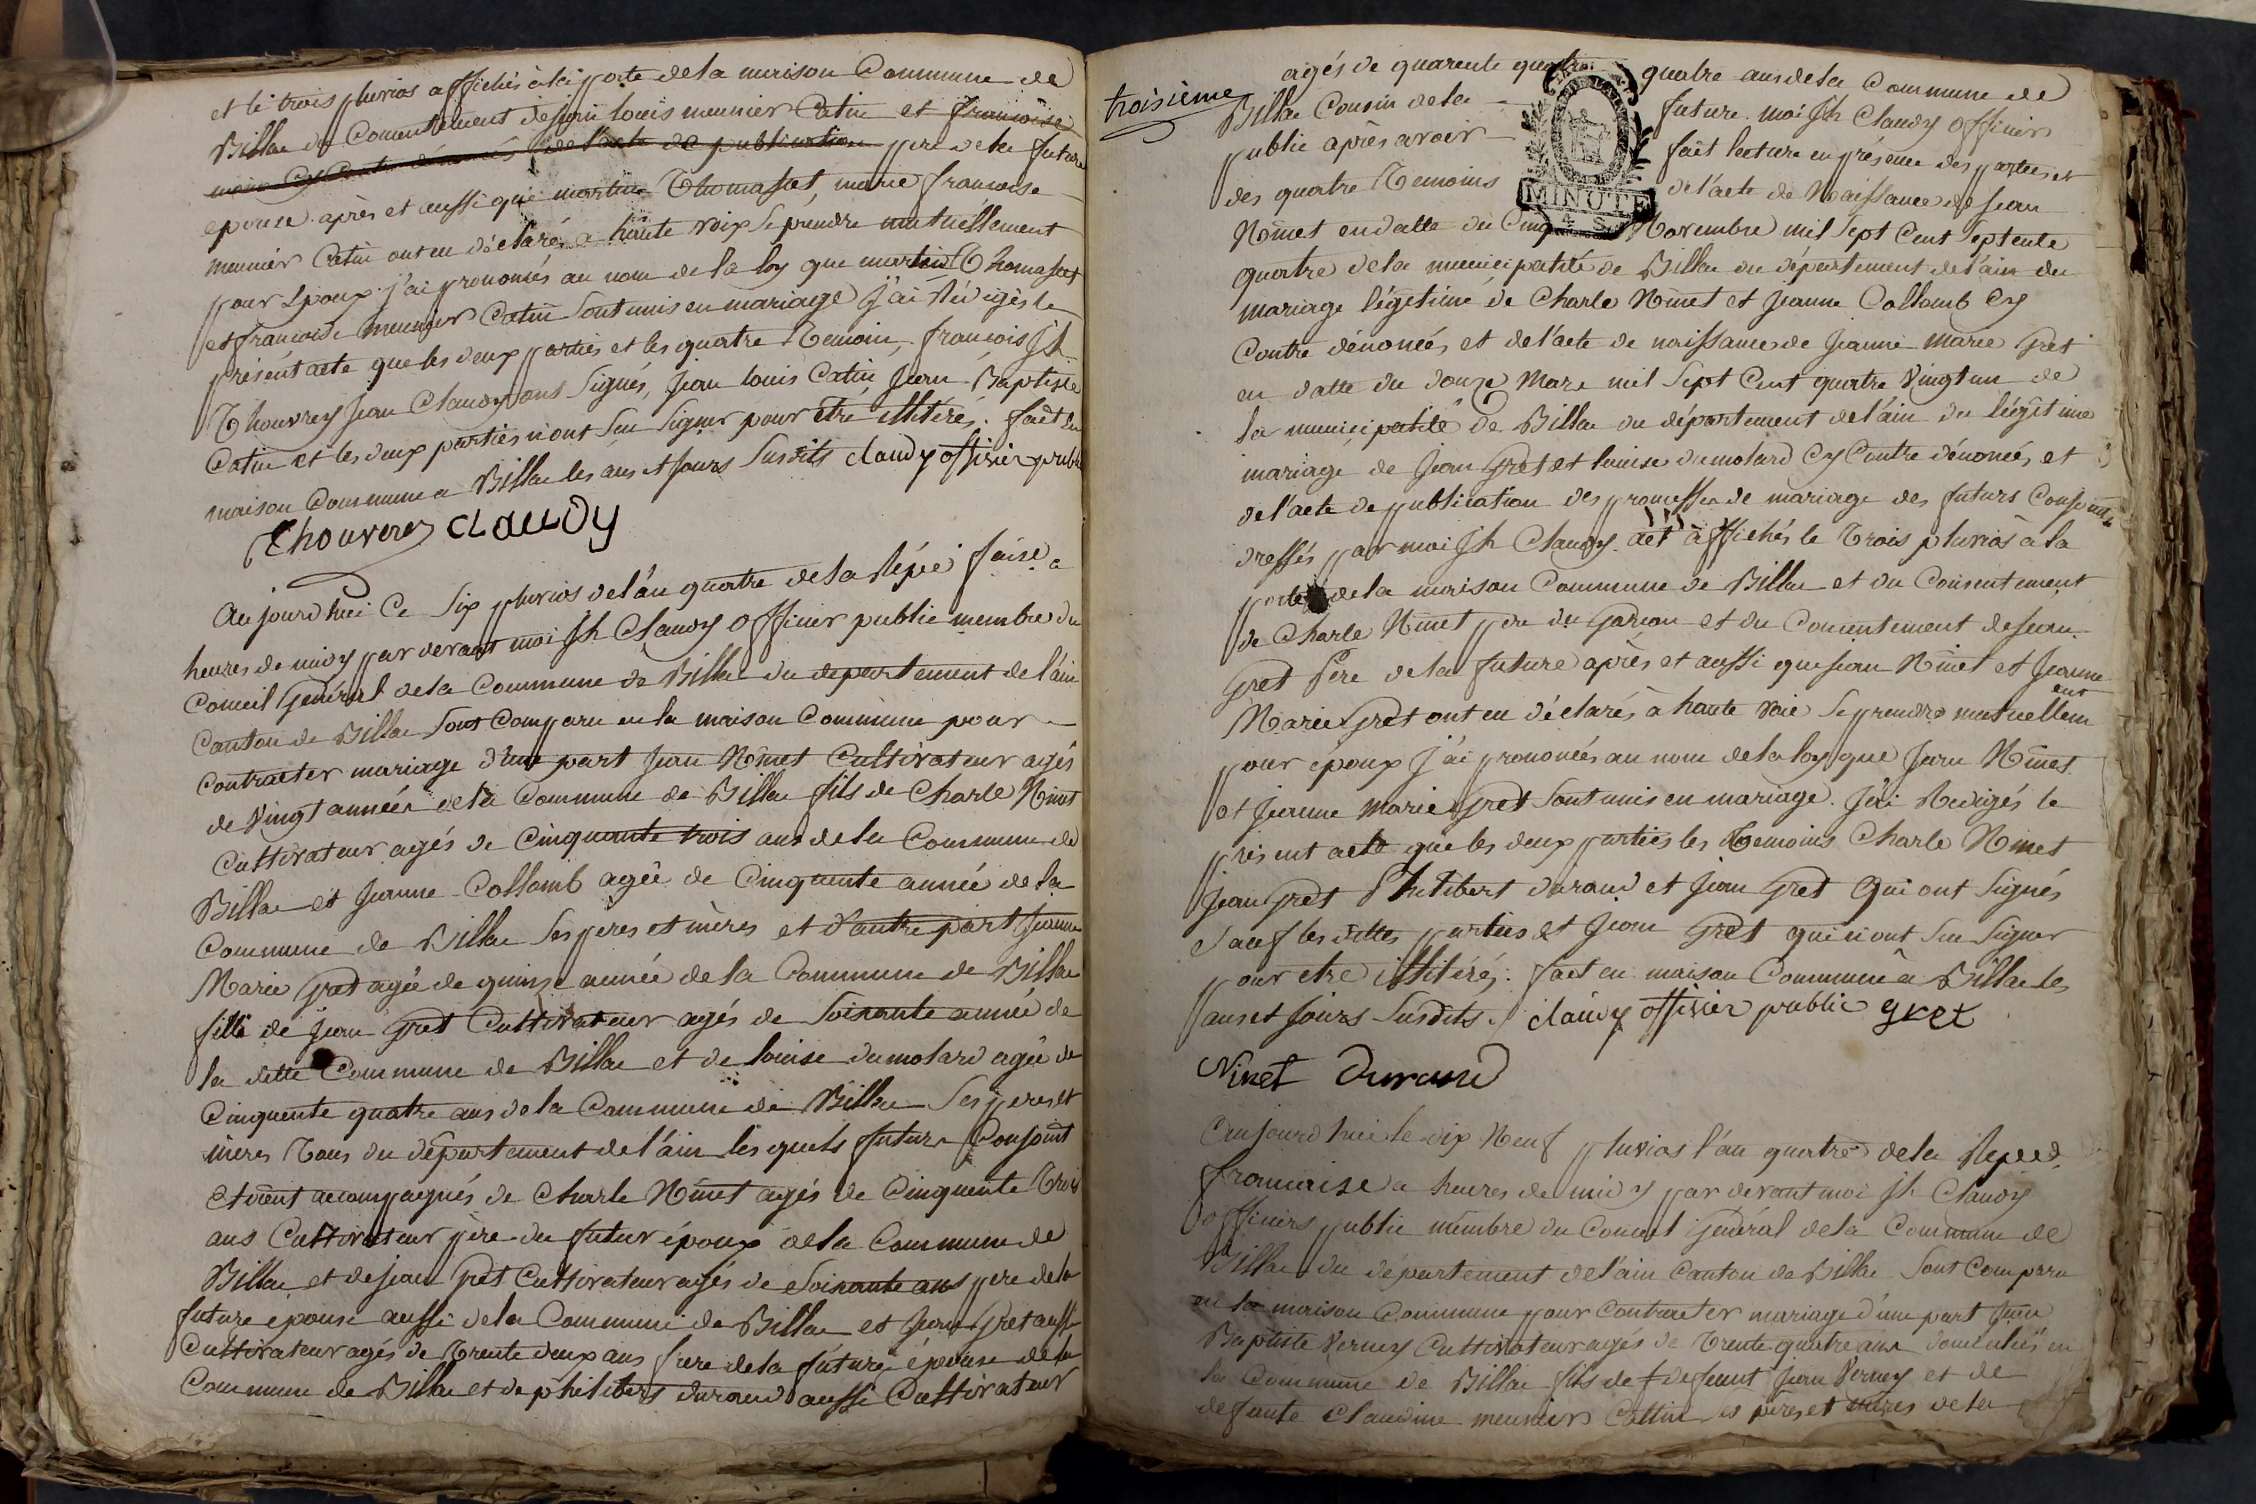 et le trois pluvios affichés à la porte de la maison Commune de
Billae du Consentement de jean louis meunier Catin et françoise
mère Cy Contre dénomés de l'acte de publication père de la future
epouse. après et aussi que martin Thomasset, marie françoise
meunier Catin ont eu déclarés a haute voix se prendre mutuellement
pour Epoux. j'ai prononcés au nom de la loy que martin Thomasset
et françoise meunier Catin sont unis en mariage J'ai Rédigés le
présent acte que les deux parties et les quatre Temoin, françois Jh
Thouverey Jean Claudy ons Signés, Jean louis Catin Jean Baptiste
Catin et les deux parties n'ont Seu Signer pour etré illitérés. fait En
maison Commune a Billae les ans et Jours Susdits claudy officier public
Thouverey Claudy
Au jourd huei Ce Six pluvios de l'an quatre de la Répu: faise. a
heures de midy par devant moi Jh Claudy officier public membre du
Conseil Général de la Commune de Billae du departement de l'ain
Canton de Billae Sont Comparu en la maison Commune pour
Contracter mariage d'une part Jean Ninet Cultivateur agés
de Vingt année de la Commune de Billae fils de Charle Ninet
Cultivateur agés de Cinquante trois ans de la Commune de
Billae et Jeanne Collomb agée de Cinquente année de la
Commune de Billae Ses peres et mères et d'autre part Jeanne
Marie gret agée de quinze année de la Commune de Billae
fille de Jean gret Cultivateur agés de Soixante année de
la ditte Commune de Billae et de louise dumolard agée de
Cinquente quatre ans de la Commune de Billae Ses peres et
mères Tous du département de l'ain les quels futurs Conjoint
etoient accompagnés de Charle Ninet agés de Cinquente Trois
ans Cultivateur père du futur époux de la Commune de
Billae et de jean gret Cultivateur agés de Soixante ans pere de la
future épouse aussi de la Commune de Billae et Jean gret aussi
Cultivateur agés de Trente deux ans frere de la future épouse de la
Commune de Billae et de philibers durand aussi Cultivateur
troisieme
agés de quarente quatre quatre ans de la Commune de
Billae Cousin de la future. moi Jh Claudy officier
public après avoir fait lecture en présence des parties et
des quatre Temoins de l'acte de Naissance de Jean
MINUTE
4 S
Ninet en datte du Cinq Novembre mil Sept Cent Septente
quatre de la municipalité de Billae du département de l'ain du
mariage légetimé de Charle Ninet et Jeanne Collomb Cy
Contre dénomés, et de l'acte de naissance de Jeanne Marie gret
en datte du douze Mars mil Sept Cent quatre Vingt un de
la municipalité de Billae du département de l'ain du légitime
mariage de Jean gret et louise dumolard Cy Contre dénomés, et
de l'acte de publication des promesses de mariage des futurs Conjoint
dressés par moi Jh Claudy. et affichés le Trois pluvios à la
porte de la maison Commune de Billae et du Consentement
de Charle Ninet pere du garçon et du Consentement de jean
gret Père de la future après et aussi que jean Ninet et Jeanne
Marie gret ont eu déclarés à haute voie Se prendre mutuellement
pour époux J'ai prononcés au nom de la loy que Jean Ninet
et Jeanne Marie gret Sont unis en mariage. J'ai Redigés le
présent acte que les deux parties les Temoins Charle Ninet
Jean gret Philibert durand et Jean gret qui ont Signés
Sauf les dittes parties et Jean gret qui n'ont Seu Signer
pour etre illitérés. fait en maison Commune a Billae les
ans et Jours Susdits. claudy officier public gret
Ninet Durand
Aujourd huei le dix Neuf pluvios l'an quatre de la Repub.
françaisse a heures de midy par devant moi Jh Claudy
officiers public membre du Conseil Général de la Commune de
Billae du département de l'ain Canton de Billae Sont Comparu
en la maison Commune pour Contracter mariage d'une part Jean
Baptiste Verney Cultivateur agés de Trente quatre ans domiciliés en
la Commune de Billae fils de defeunt Jean Verney et de
defeunte Claudine meuniers Cattin Ses pères et mères de la